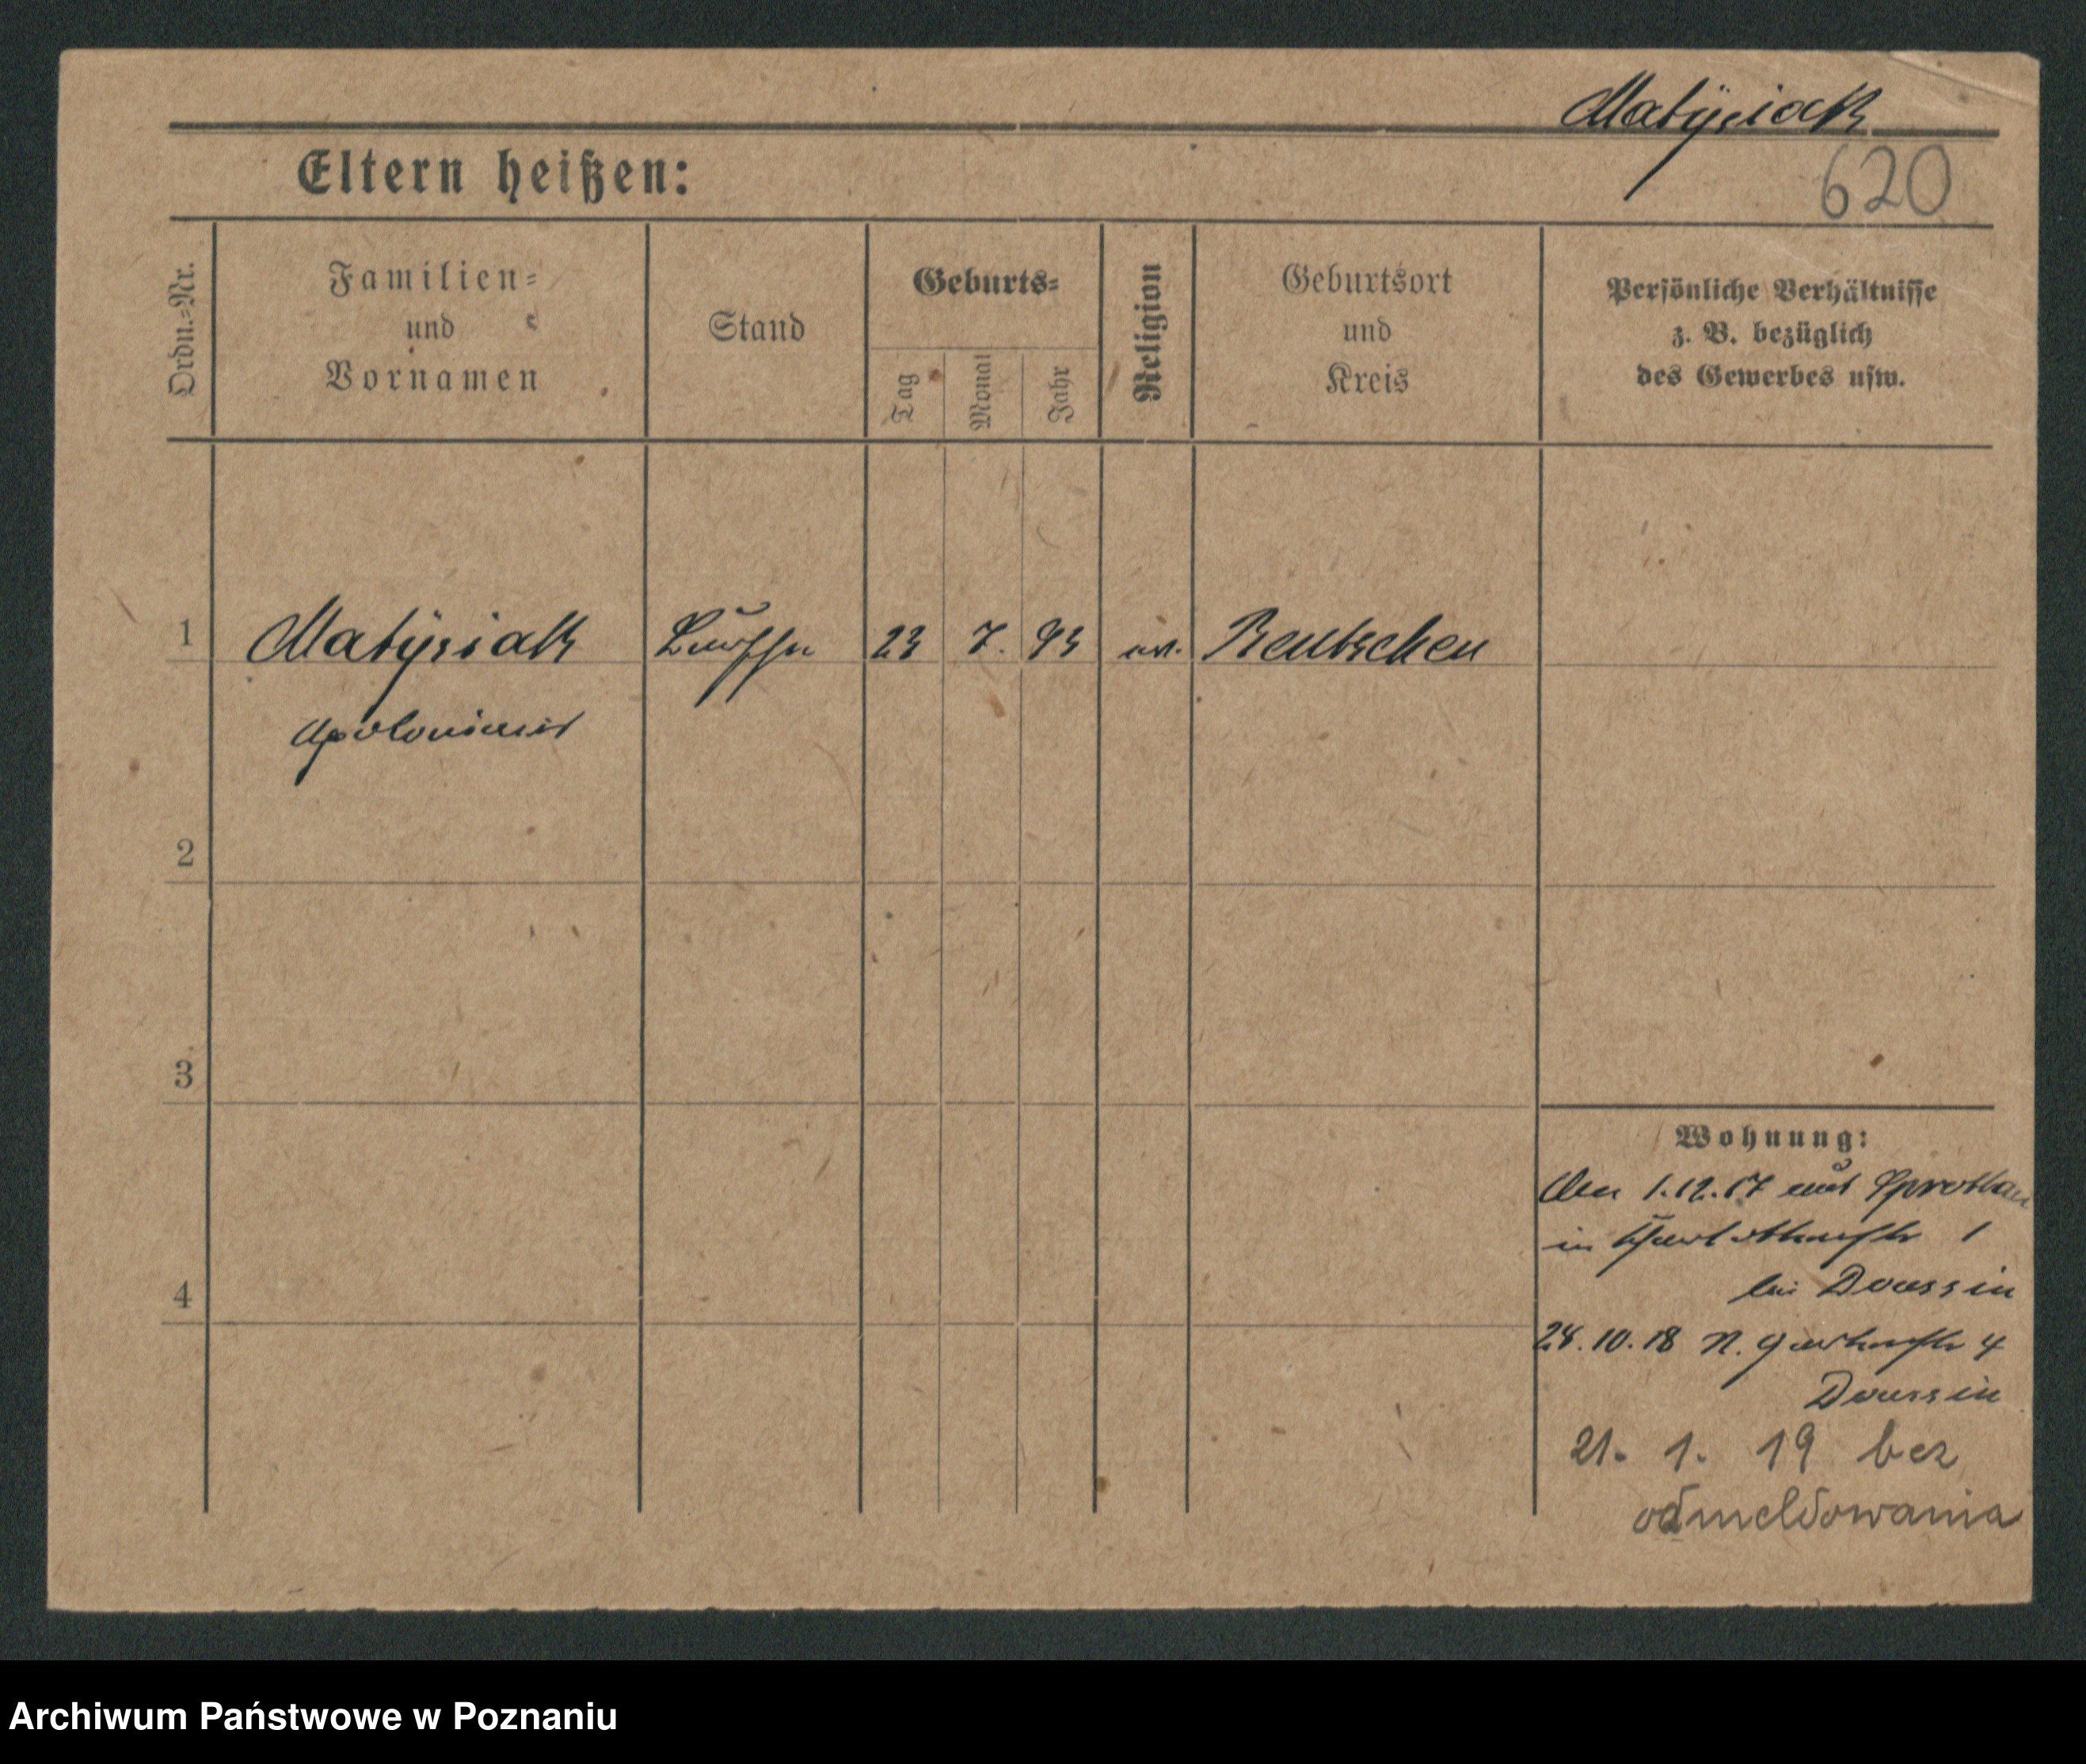 Matÿsiak
620
Eltern heißen:
Ordn.-Nr.
Familien-
und
Vornamen
Stand
Geburts-
Tag
Monat
Jahr
Religion
Geburtsort
und
Kreis
Persönliche Verhältnisse
z. B. bezüglich
des Gewerbes usw.
1 Matÿsiak 23 7. 93 Bentschen
2
3
4
Wohnung:
1.12.17 aus Sprottau
in 1
bei
24.10.18 N. 4
21. 1. 19 bez
odmeldowania
Archiwum Państwowe w Poznaniu